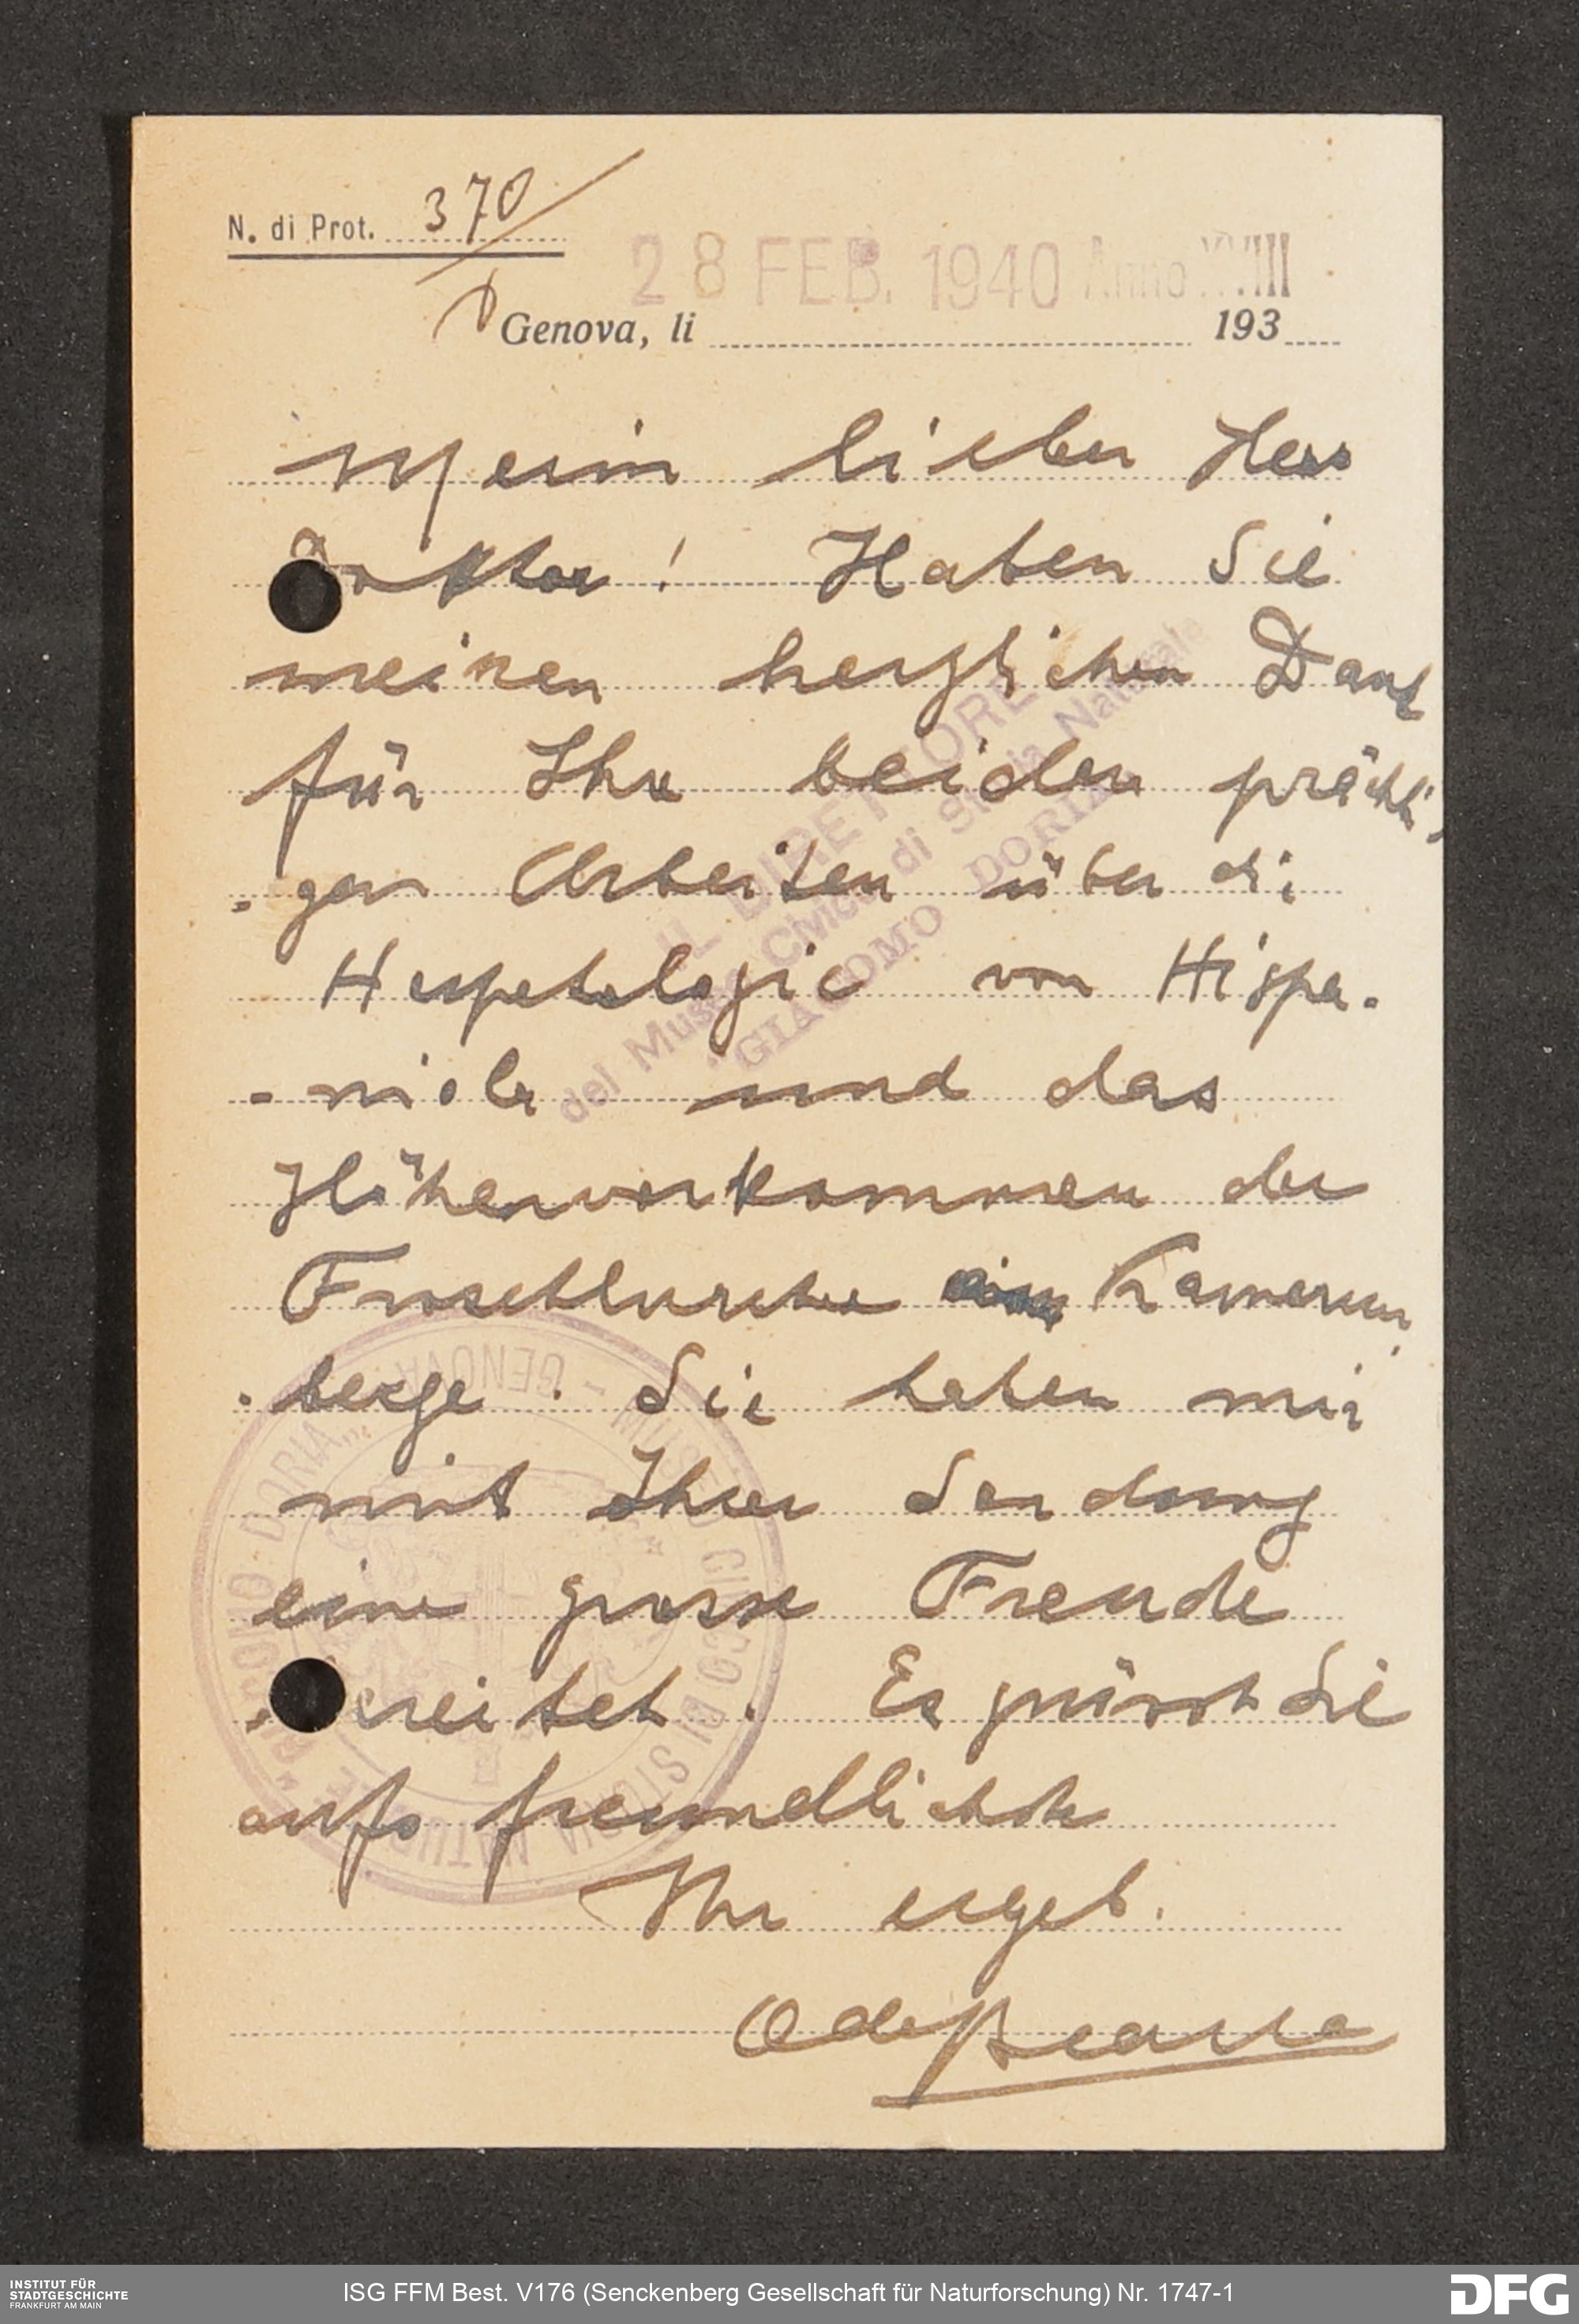 N. di Prot. 370
28 FEB. 1940 Anno XVIII
Genova, li 193
Mein lieber Herr
Doktor! Haben Sie
meinen herzlichen Dank
für Ihre beiden prächti-
-gen Arbeiten über die
Herpetologie von Hispa-
-niola und das
Höhenvorkommen der
Froschlurche Kamerun
-berge. Sie haben mir
mit Ihrer Sendung
eine grosse Freude
bereitet. Es grüsst Sie
aufs freundlichste
Ihr ergeb.
IL DIRETTORE
del Museo Civico di Storia Naturale
"GIACOMO DORIA"
MUSEO CIVICO DI STORIA NATURALE "GIACOMO DORIA" - GENOVA -
INSTITUT FÜR
STADTGESCHICHTE
FRANKFURT AM MAIN
ISG FFM Best. V176 (Senckenberg Gesellschaft für Naturforschung) Nr. 1747-1
DFG